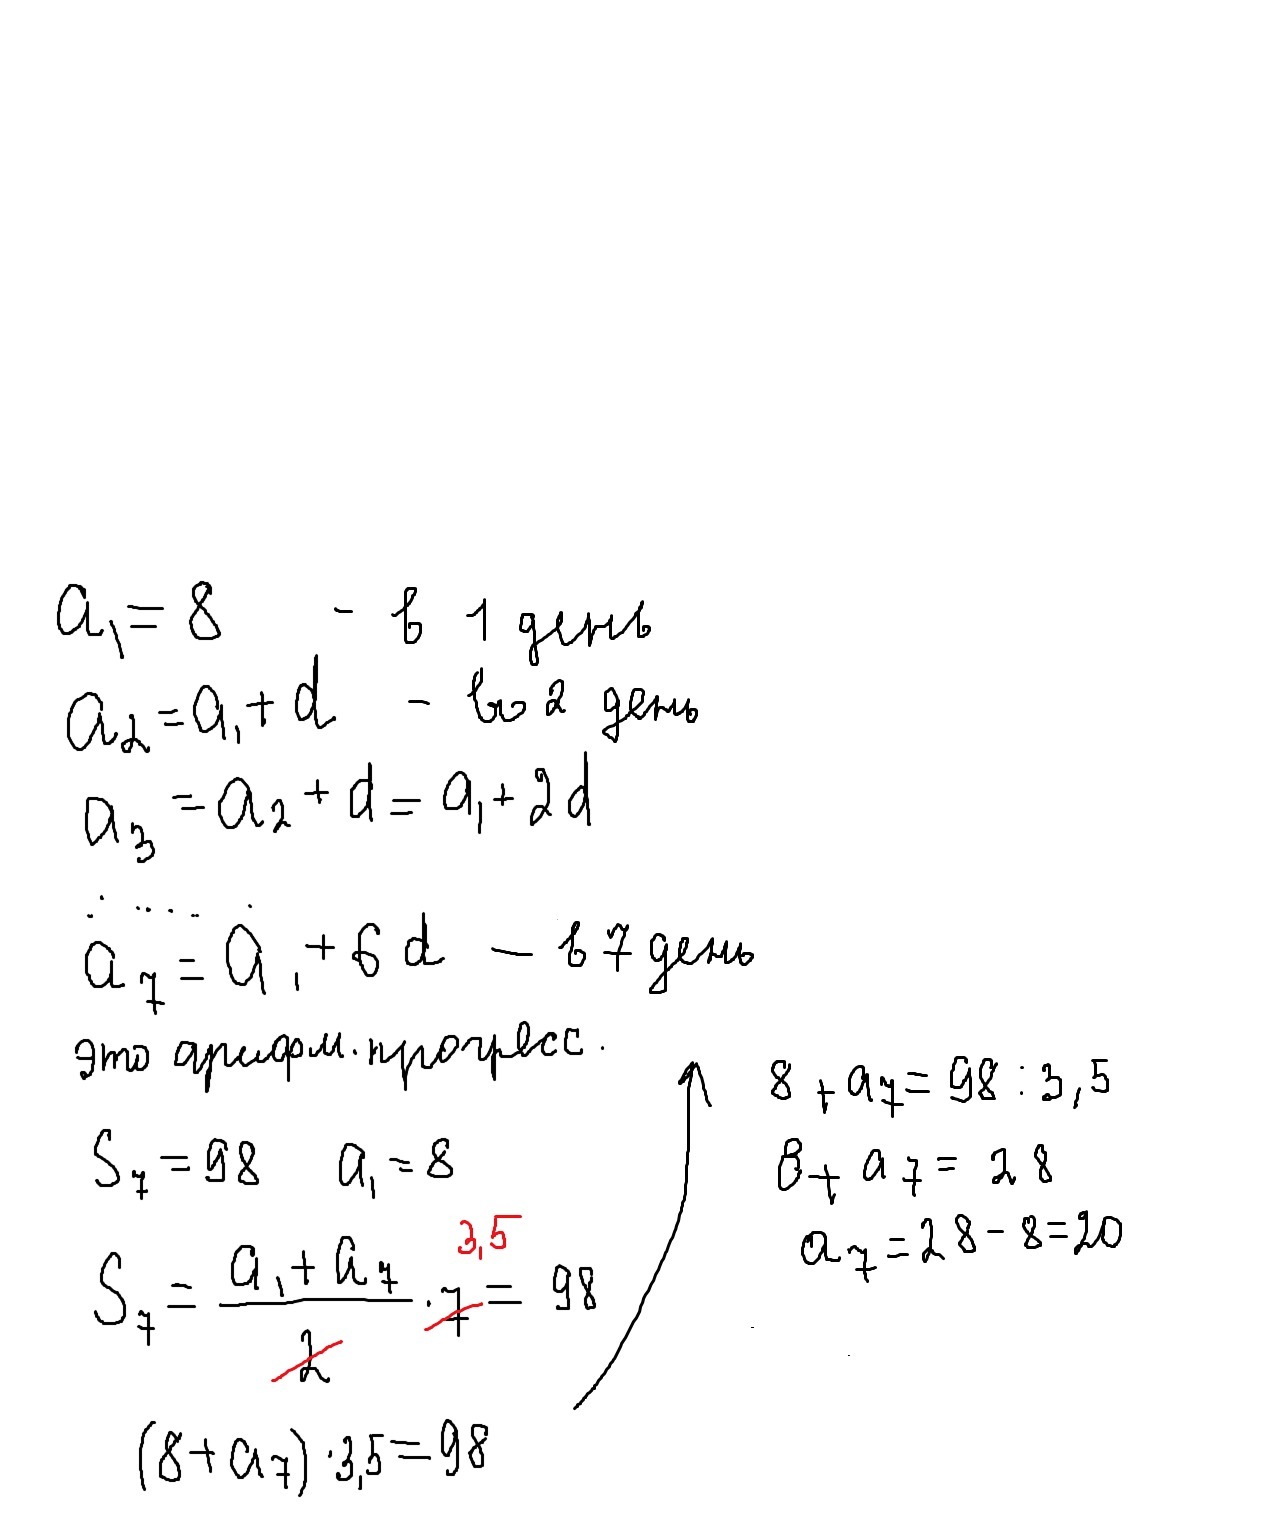 a₁ = 8 - в 1 день
a₂ = a₁ + d - во 2 день
a₃ = a₂ + d = a₁ + 2d
.......
a₇ = a₁ + 6d — в 7 день
это арифм. прогресс.
S₇ = 98 a₁ = 8
3,5
S₇ = (a₁ + a₇)/2 · 7 = 98
(8 + a₇) · 3,5 = 98
8 + a₇ = 98 : 3,5
8 + a₇ = 28
a₇ = 28 - 8 = 20